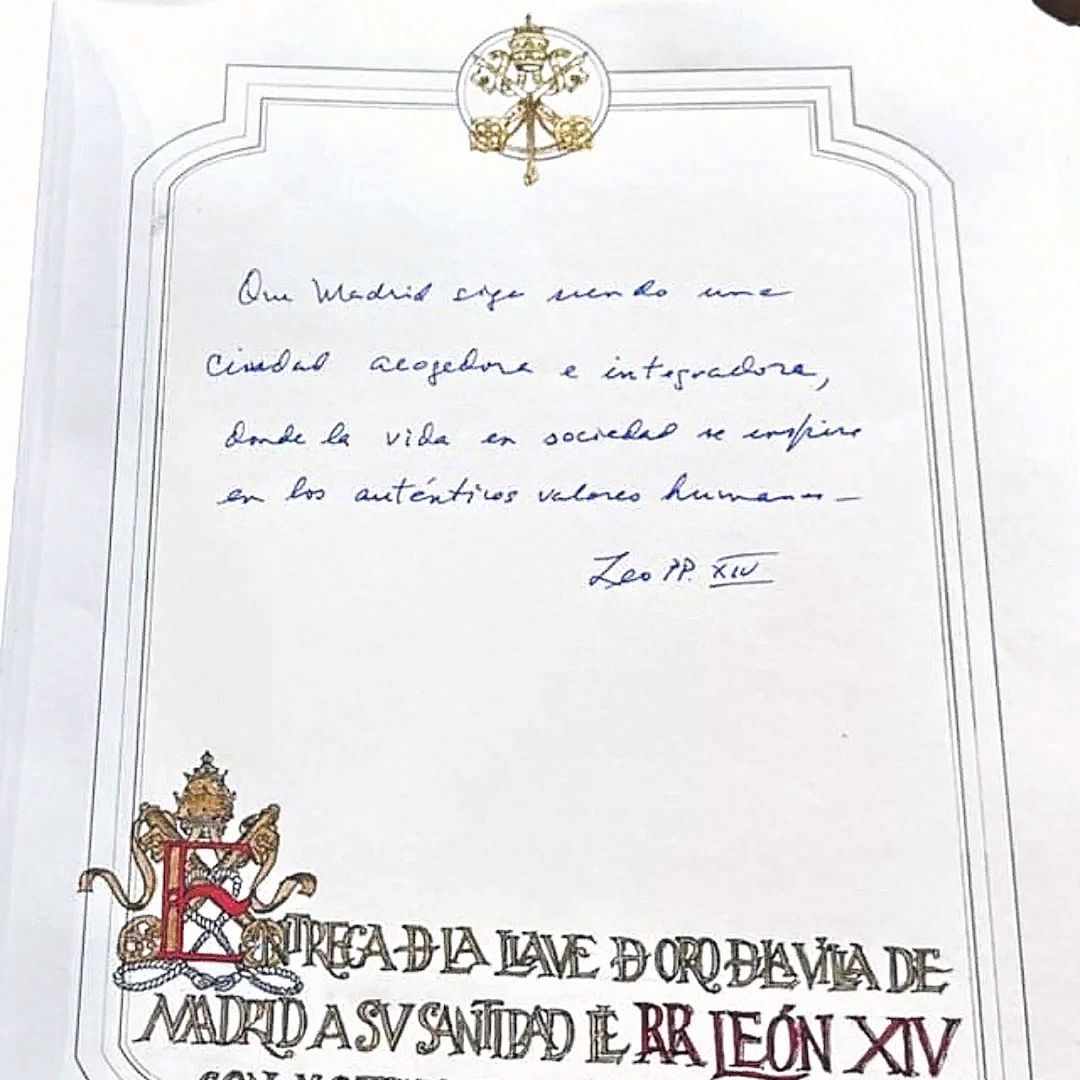 Que Madrid siga siendo una
ciudad acogedora e integradora,
donde la vida en sociedad se inspire
en los auténticos valores humanos –
Leo PP. XIV
ENTREGA DE LA LLAVE DE ORO DE LA VILLA DE
MADRID A SU SANTIDAD EL PAPA LEÓN XIV
CON MOTIVO